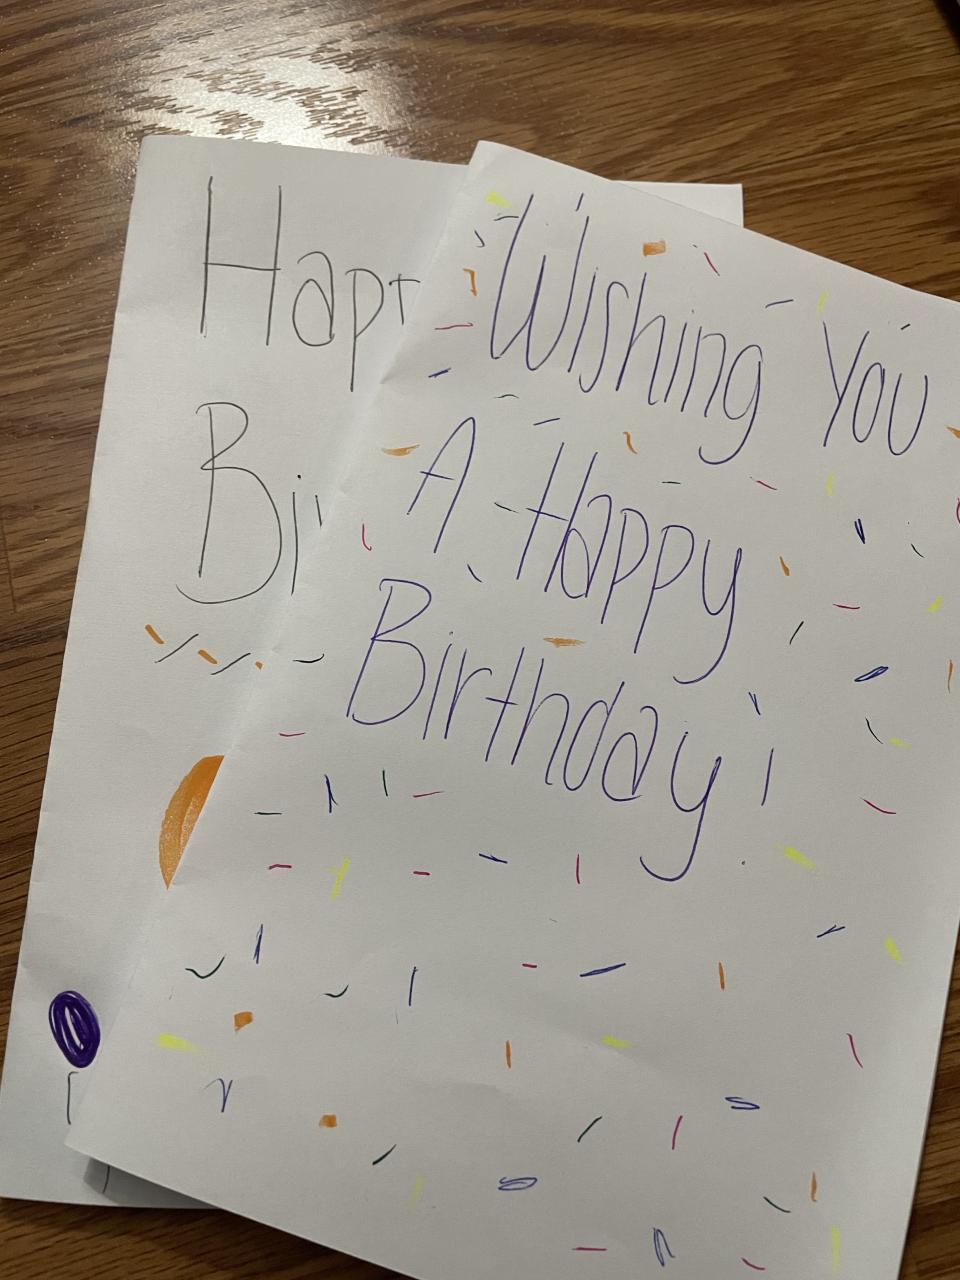 Hap
Bi
Wishing You
A Happy
Birthday!